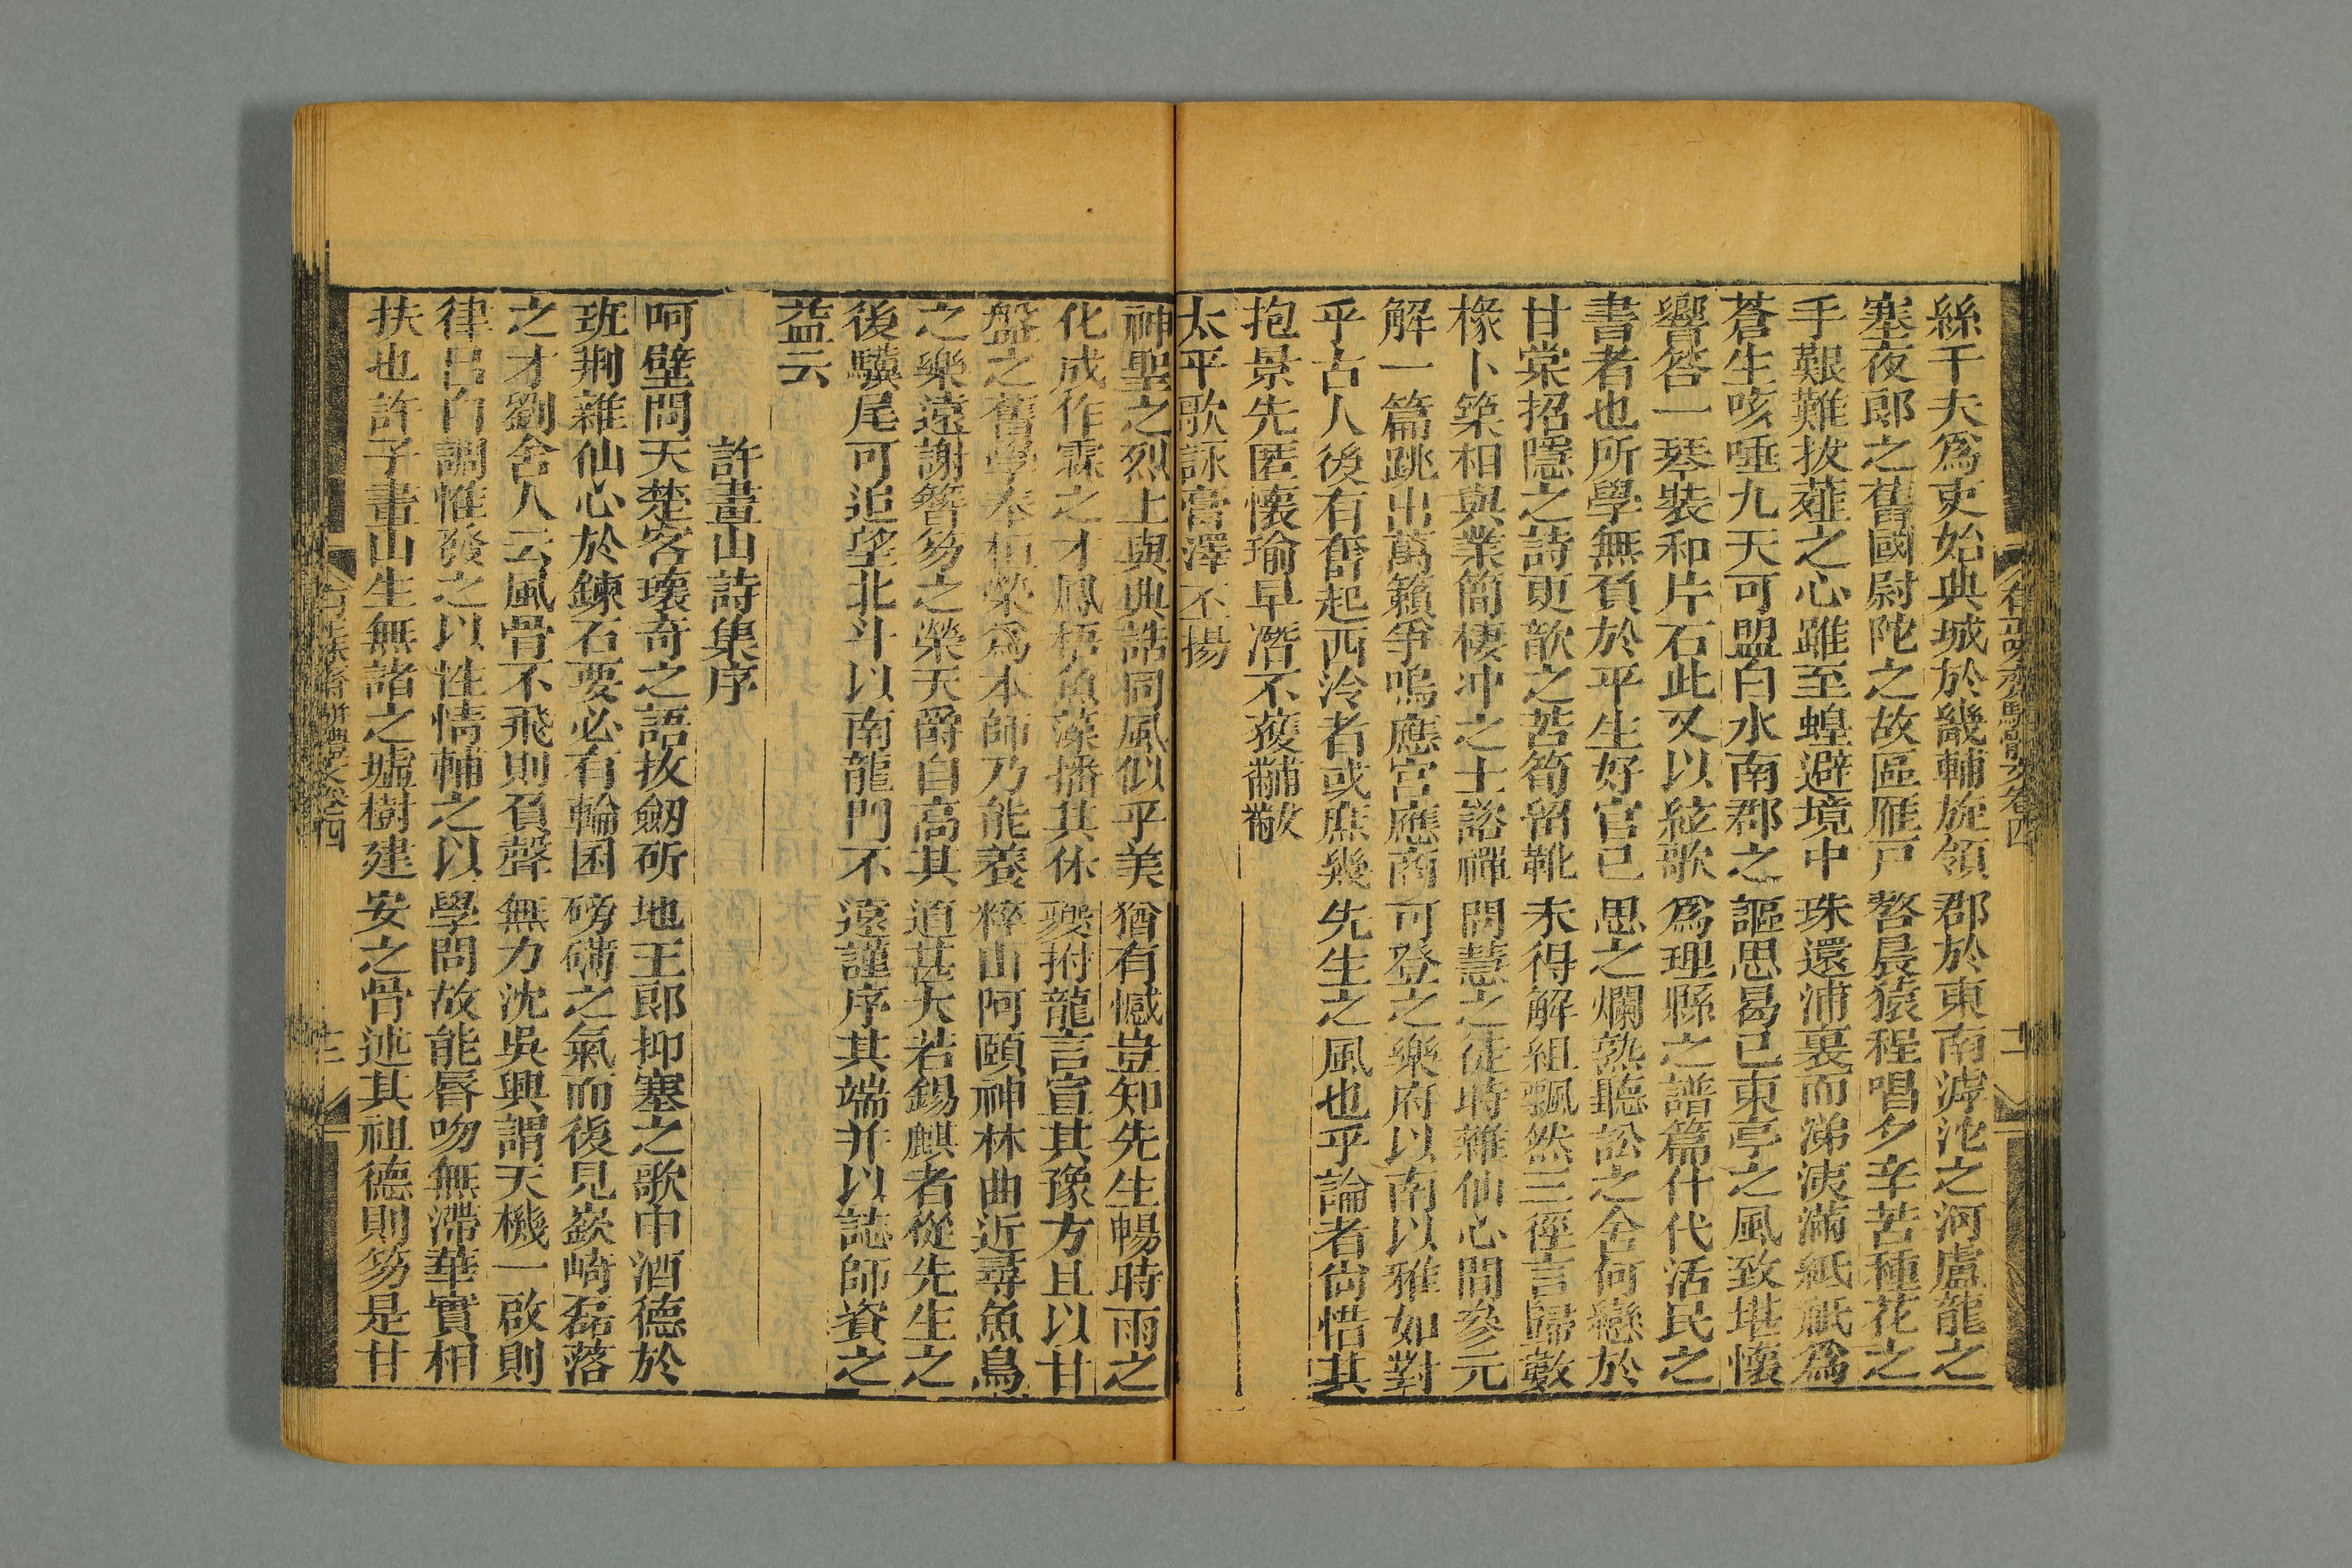 絲干夫爲吏始典城於畿輔旋領郡於東南滹沱之河盧龍之
塞夜郎之舊國尉陀之故區雁戸警晨猿程唱夕辛苦種花之
手艱難拔薤之心雖至蝗避境中珠還浦裏而涕洟滿紙祇爲
蒼生咳唾九天可盟白水南郡之謳思曷已東亭之風致堪懷
響答一琴裝和片石此又以絃歌爲理縣之譜篇什代活民之
書者也所學無負於平生好官已思之爛熟聽訟之舍何戀於
甘棠招隱之詩更歌之苦筍留靴未得解組飄然三徑言歸數
椽卜築相與業簡棲冲之士談禪問慧之徒時雜仙心間參元
解一篇跳出萬籟爭鳴應宮應商可登之樂府以南以雅如對
乎古人後有奮起西泠者或庶幾先生之風也乎論者尙惜其
抱景先匿懷瑜早潛不獲黼黻
太平歌詠膏澤不揚
神聖之烈上與典誥同風似乎美猶有憾豈知先生暢時雨之
化成作霖之才鳳梧魚藻播其休夔拊龍言宣其豫方且以甘
盤之舊學奉桓榮爲本師乃能養粹山阿頤神林曲近尋魚鳥
之樂遠謝簪笏之榮天爵自高其道甚大若錫麒者從先生之
後驥尾可追望北斗以南龍門不遠謹序其端并以誌師資之
益云
許畫山詩集序
呵壁問天楚客瓌奇之語拔劒斫地王郎抑塞之歌中酒德於
班荆雜仙心於鍊石要必有輪囷磅礴之氣而後見嶔崎磊落
之才劉舍人云風骨不飛則負聲無力沈吳興謂天機一啟則
律呂自調惟發之以性情輔之以學問故能脣吻無滯華實相
扶也許子畫山生無諸之墟樹建安之骨述其祖德則笏是甘